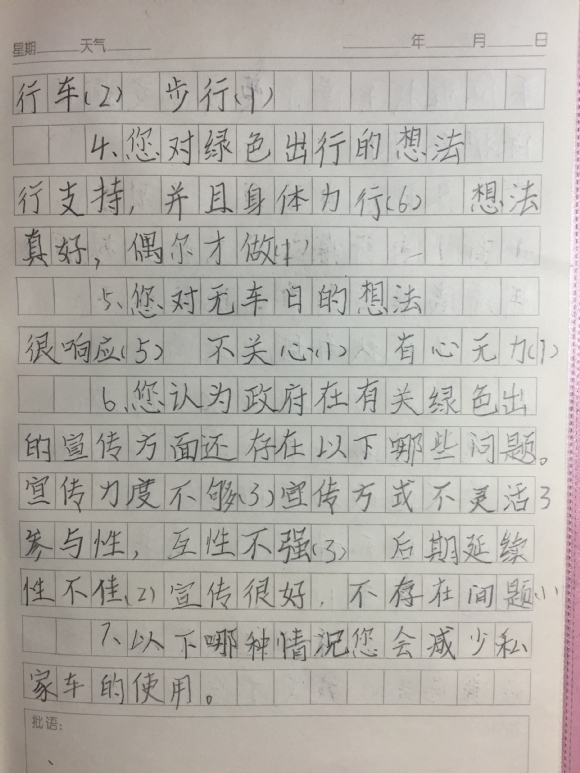 星期 天气 年 月 日
行车(2) 步行(1)
4、您对绿色出行的想法
行支持，并且身体力行(6) 想法
真好，偶尔才做(1)
5、您对无车日的想法
很响应(5) 不关心(1) 有心无力(1)
6、您认为政府在有关绿色出
的宣传方面还存在以下哪些问题。
宣传力度不够(3)宣传方式不灵活3
参与性，互性不强(3) 后期延续
性不佳(2)宣传很好，不存在问题(1)
7、以下哪种情况您会减少私
家车的使用。
批语：